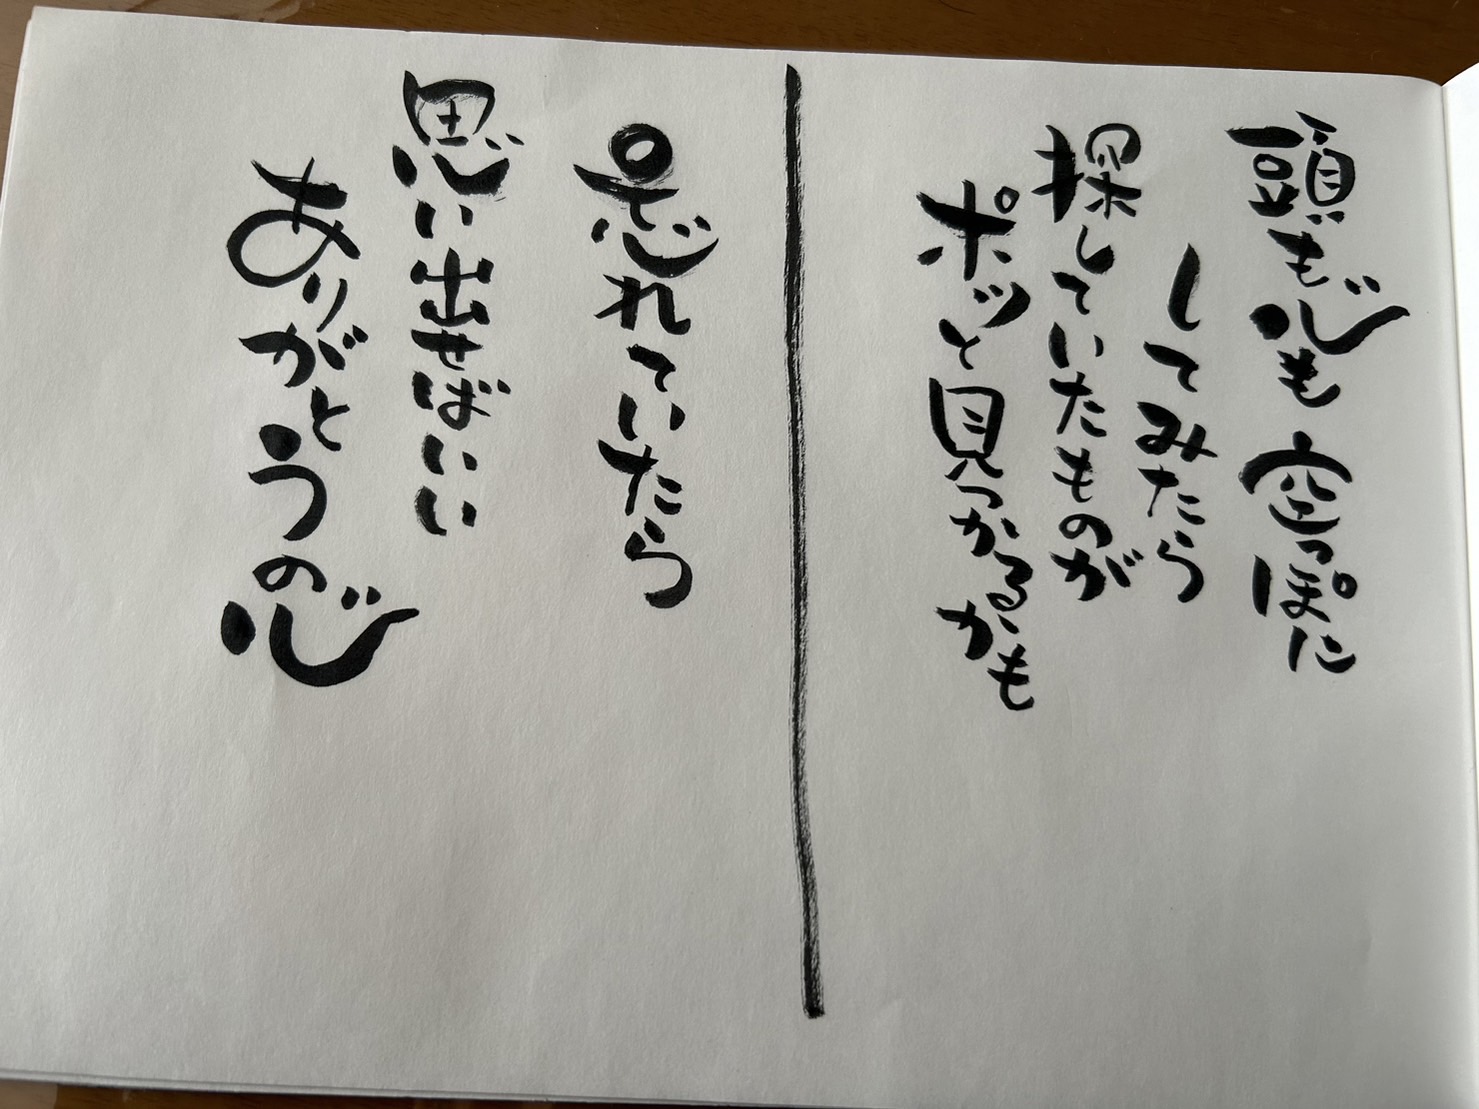 頭も心も空っぽに
してみたら
探していたものが
ポッと見つかるかも
忘れていたら
思い出せばいい
ありがとうの心